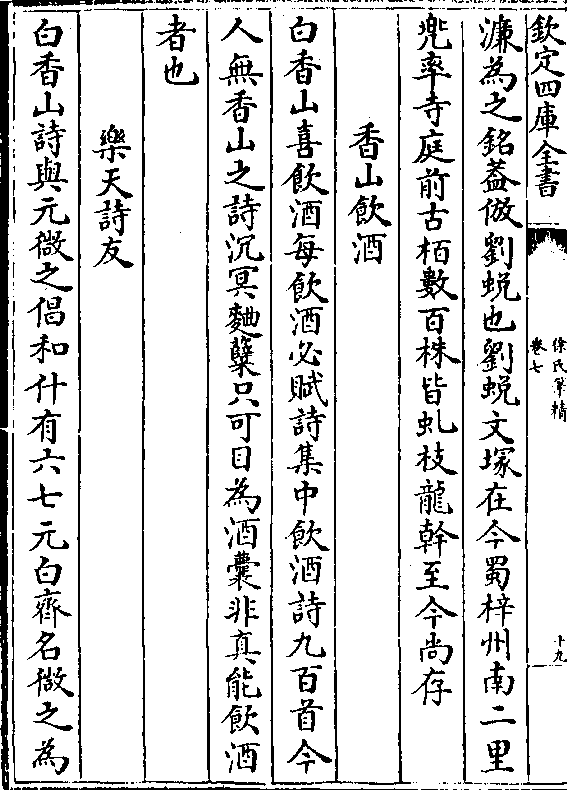 欽定四庫全書
徐氏筆精
卷七
十九
濂為之銘葢倣劉蛻也劉蛻文塚在今蜀梓州南二里
兠率寺庭前古栢數百株皆虬枝龍幹至今尚存
香山飲酒
白香山喜飲酒每飲酒必賦詩集中飲酒詩九百首今
人無香山之詩沉冥麴櫱只可目為酒囊非真能飲酒
者也
樂天詩友
白香山詩與元微之倡和什有六七元白齊名微之為